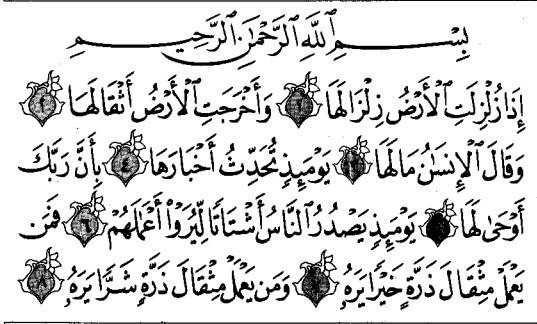 بِسْمِ ٱللَّهِ ٱلرَّحْمَٰنِ ٱلرَّحِيمِ
إِذَا زُلْزِلَتِ ٱلْأَرْضُ زِلْزَالَهَا ١ وَأَخْرَجَتِ ٱلْأَرْضُ أَثْقَالَهَا ٢
وَقَالَ ٱلْإِنسَٰنُ مَا لَهَا ٣ يَوْمَئِذٍ تُحَدِّثُ أَخْبَارَهَا ٤ بِأَنَّ رَبَّكَ
أَوْحَىٰ لَهَا ٥ يَوْمَئِذٍ يَصْدُرُ ٱلنَّاسُ أَشْتَاتًا لِّيُرَوْا۟ أَعْمَٰلَهُمْ ٦ فَمَن
يَعْمَلْ مِثْقَالَ ذَرَّةٍ خَيْرًا يَرَهُۥ ٧ وَمَن يَعْمَلْ مِثْقَالَ ذَرَّةٍ شَرًّا يَرَهُۥ ٨